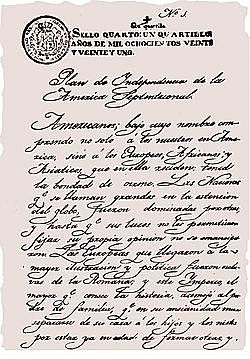 No. 1.
Un quartillo
SELLO QUARTO: UN QUARTILLO
AÑOS DE MIL OCHOCIENTOS VEINTE
Y VEINTE Y UNO.
Plan de Independencia de la
America Septentrional.
Americanos; bajo cuyo nombre com-
prendo no solo a los nacidos en Ame-
rica, sinó á los Europeos, Africanos, y
Asiaticos, que en ella residen: tened
la bondad de oirme. Las Naciones
q.e se llaman grandes en la extension
del globo, fueron dominadas por otras;
y hasta q.e sus luces no les permitieron
fijar su propia opinion no se emancipa-
ron. Las Europeas que llegaron á la
mayor ilustracion y politica, fueron escla-
vas de la Romana; y este Imperio, el
mayor q.e conoce la historia, asemejó al pa-
dre de familias, q.e en su ancianidad mira
separarse de su casa á los hijos y los nietos
por estar ya en edad de formar otras, y